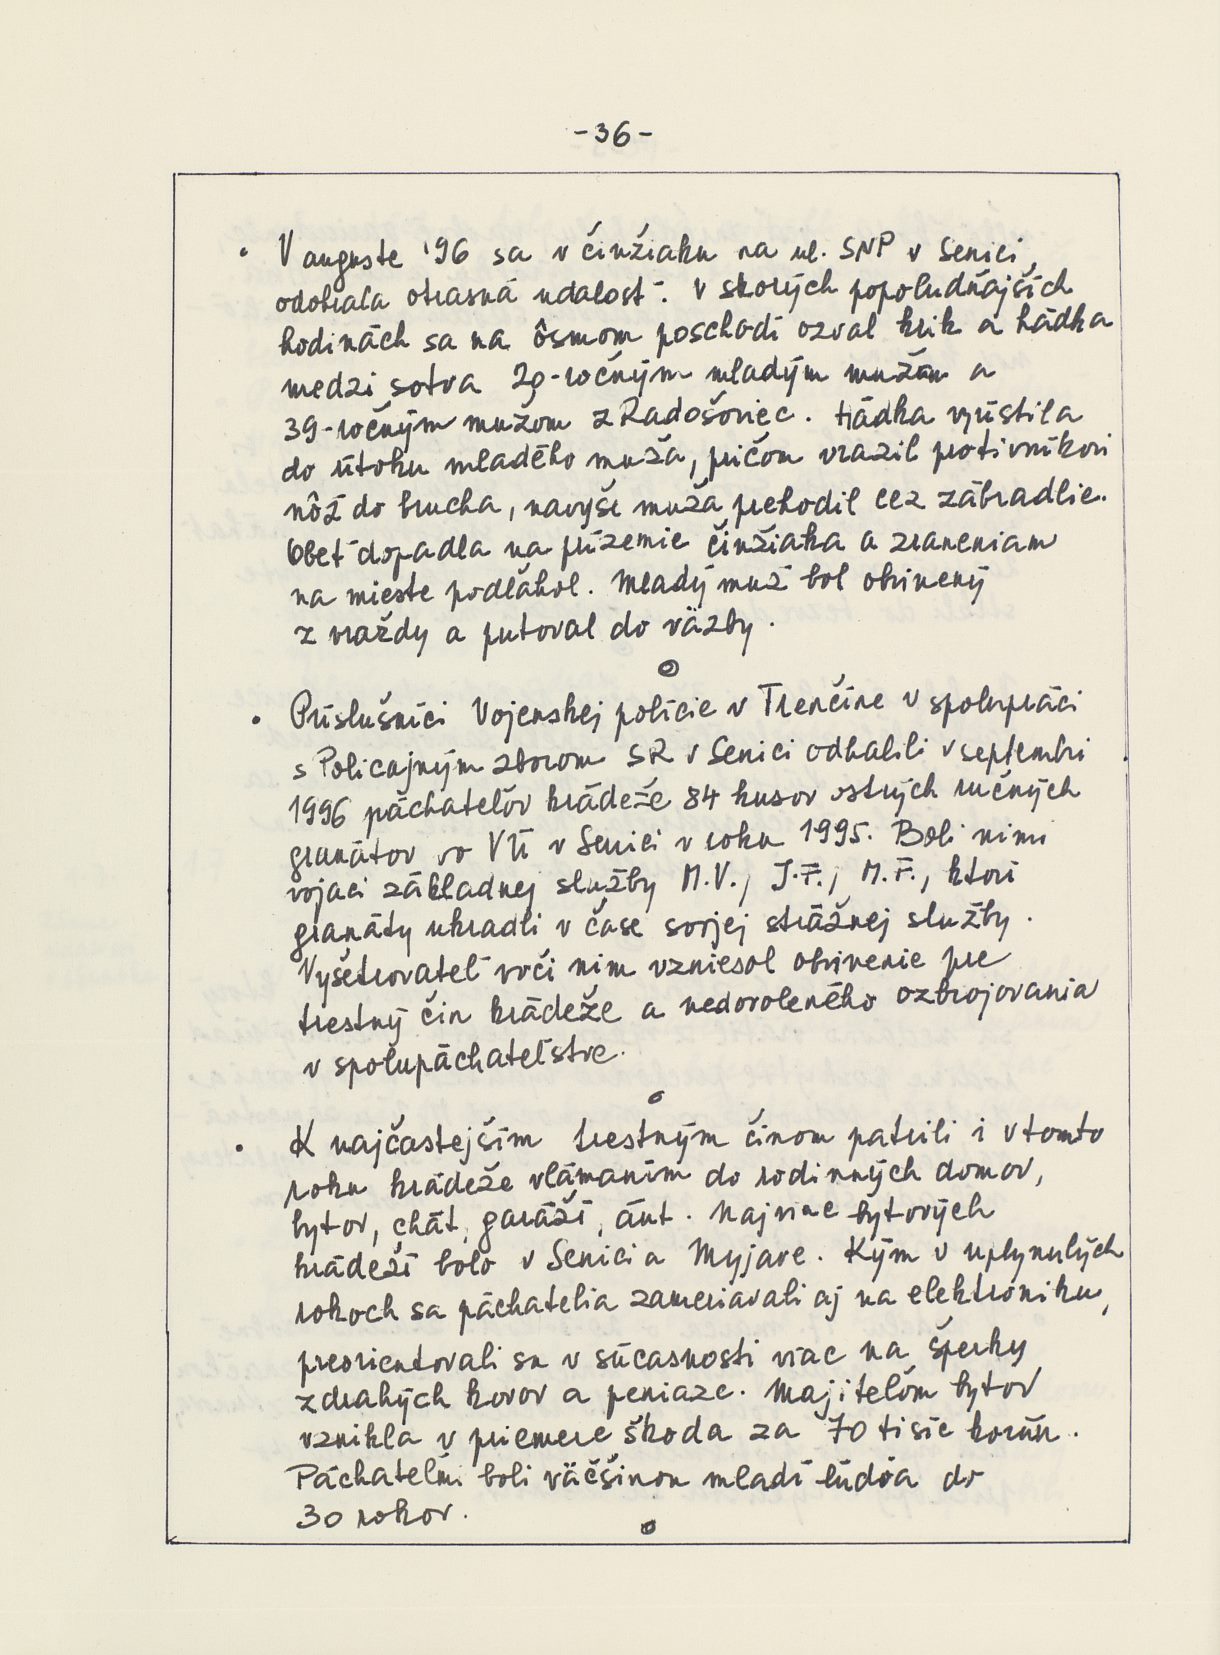 -36-
• V auguste '96 sa v činžiaku na ul. SNP v Senici,
odohrala otrasná udalosť. V skorých popoludňajších
hodinách sa na ôsmom poschodí ozval krik a hádka
medzi sotva 20-ročným mladým mužom a
39-ročným mužom z Radošoviec. Hádka vyústila
do útoku mladého muža, pričom vrazil protivníkovi
nôž do brucha, navyše muža prehodil cez zábradlie.
Obeť dopadla na prízemie činžiaka a zraneniam
na mieste podľahol. Mladý muž bol obvinený
z vraždy a putoval do väzby.
• Príslušníci Vojenskej polície v Trenčíne v spolupráci
s Policajným zborom SR v Senici odhalili v septembri
1996 páchateľov krádeže 84 kusov ostrých ručných
granátov vo VÚ v Senici v roku 1995. Boli nimi
vojaci základnej služby M.V., J.F., M.F., ktorí
granáty ukradli v čase svojej strážnej služby.
Vyšetrovateľ voči nim vzniesol obvinenie pre
trestný čin krádeže a nedovoleného ozbrojovania
v spolupáchateľstve.
• K najčastejším trestným činom patrili i v tomto
roku krádeže vlámaním do rodinných domov,
bytov, chát, garáží, áut. Najviac bytových
krádeží bolo v Senici a Myjave. Kým v uplynulých
rokoch sa páchatelia zameriavali aj na elektroniku,
preorientovali sa v súčasnosti viac na šperky
z drahých kovov a peniaze. Majiteľom bytov
vznikla v priemere škoda za 70 tisíc korún.
Páchateľmi boli väčšinou mladí ľudia do
30 rokov.